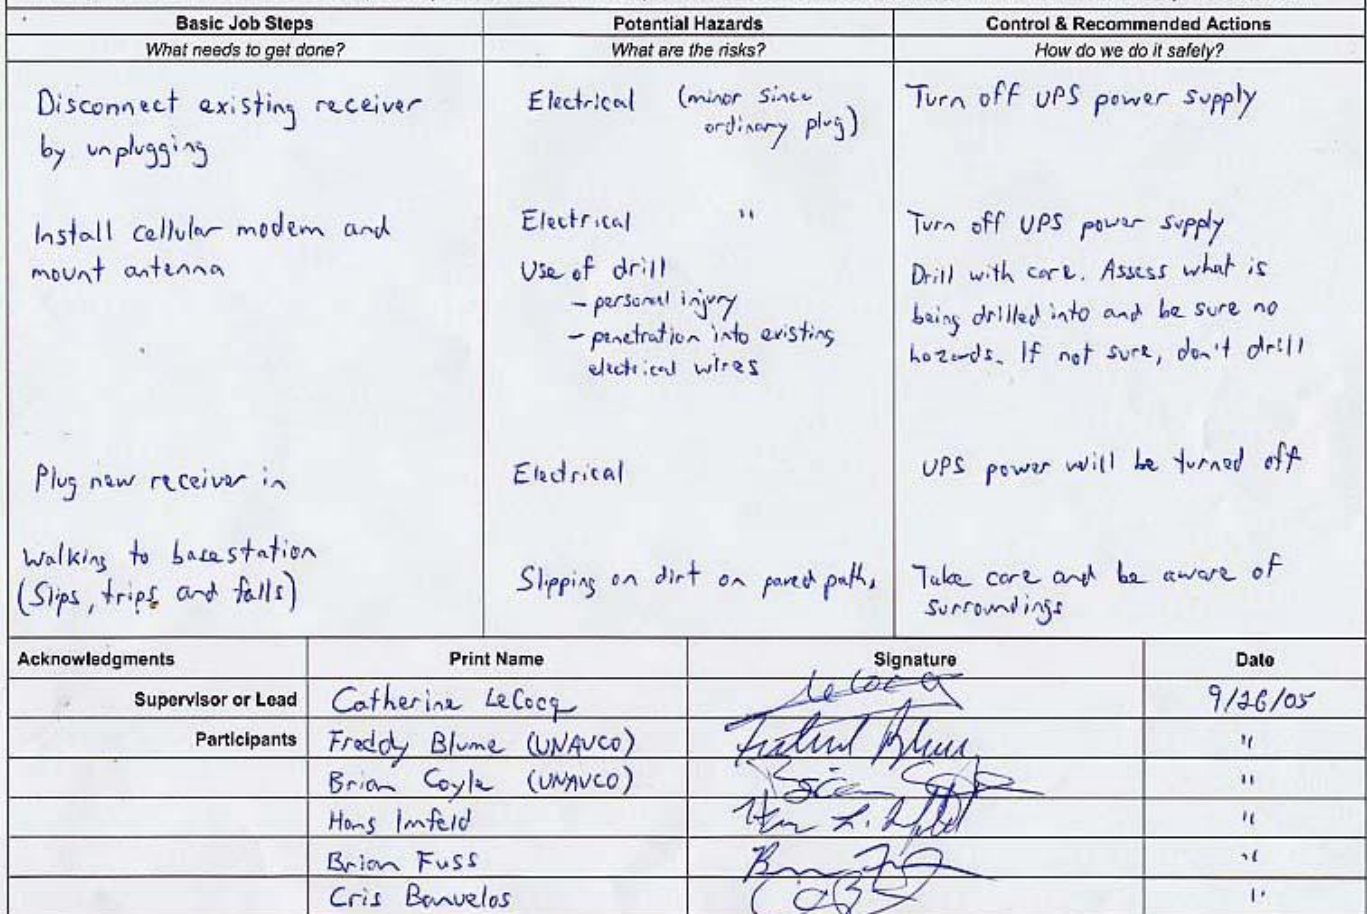 Basic Job Steps
Potential Hazards
Control & Recommended Actions
What needs to get done?
What are the risks?
How do we do it safely?
Disconnect existing receiver
by unplugging
Electrical (minor since
ordinary plug)
Turn off UPS power supply
Install cellular modem and
mount antenna
Electrical "
Use of drill
- personal injury
- penetration into existing
electrical wires
Turn off UPS power supply
Drill with care. Assess what is
being drilled into and be sure no
hazards. If not sure, don't drill
Plug new receiver in
Electrical
UPS power will be turned off
Walking to base station
(Slips, trips and falls)
Slipping on dirt on paved path.
Take care and be aware of
surroundings
Acknowledgments
Print Name
Signature
Date
Supervisor or Lead
Catherine LeCocq
LeCocq
9/26/05
Participants
Freddy Blume (UNAVCO)
"
Brian Coyle (UNAVCO)
"
Hans Imfeld
"
Brian Fuss
"
Cris Banuelos
"